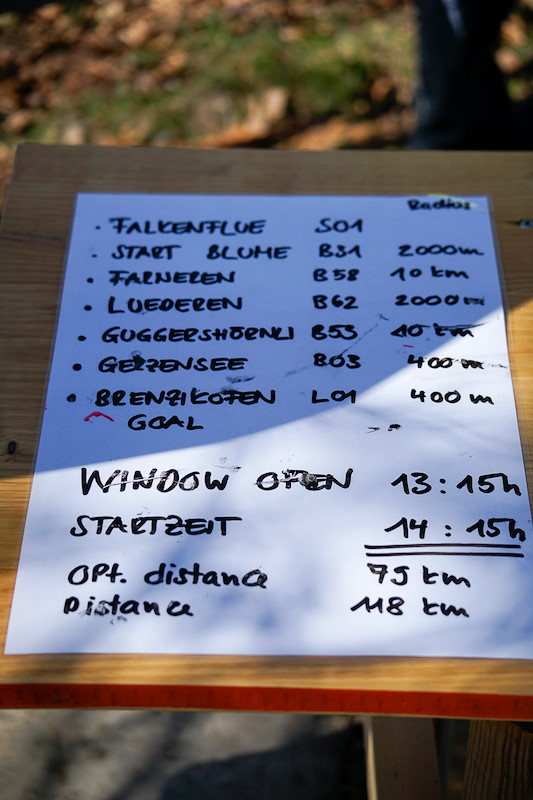 Radius
· FALKENFLUE S01
· START BLUME B31 2000m
· FARNEREN B58 10 km
· LUEDEREN B62 2000m
· GUGGERSHÖRNLI B53 10 km
· GERZENSEE B03 400m
· BRENZIKOFEN L01 400m
GOAL
WINDOW OPEN 13:15h
STARTZEIT 14:15h
Opt. distance 79 km
Distance 118 km